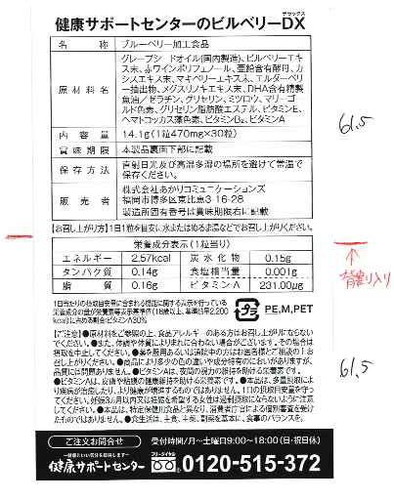 デラックス
健康サポートセンターのビルベリーDX
名称 ブルーベリー加工食品
原材料名 グレープシードオイル(国内製造)、ビルベリーエキ
ス末、赤ワインポリフェノール、亜鉛含有酵母、カ
シスエキス末、マキベリーエキス末、エルダーベリ
ー抽出物、メグスリノキエキス末、DHA含有精製
魚油/ゼラチン、グリセリン、ミツロウ、マリーゴー
ルド色素、グリセリン脂肪酸エステル、ビタミンE、
ヘマトコッカス藻色素、ビタミンB₆、ビタミンA
内容量 14.1g(1粒470mg×30粒)
賞味期限 本製品裏面下部に記載
保存方法 直射日光及び高温多湿の場所を避けて常温で
保存ください。
販売者 株式会社あかりコミュニケーションズ
福岡市博多区東比恵3-16-28
製造所固有番号は賞味期限右に記載
【お召し上がり方】1日1粒を目安に水またはぬるま湯などでお召し上がりください。
栄養成分表示(1粒当り)
エネルギー 2.57kcal 炭水化物 0.15g
タンパク質 0.14g 食塩相当量 0.001g
脂質 0.16g ビタミンA 231.00μg
プラ
PE,M,PET
61.5
背割り入り
61.5
【ご注意】●原材料をご参照の上、食品アレルギーのある方はお召し上がりにならない
でください。●また、体調や体質により
●薬を服用あるいは通院中の方はお医者様とご相談の上お
召し上がりください。
品質には問題ありません。●ビタミンAは、夜間の視力の維持を助ける栄養素です。
●ビタミンAは、皮膚や粘膜の健康維持を助ける栄養素です。●本品は、多量摂取によ
り疾病が治癒したり、より健康が増進するものではありません。1日の摂取目安量を守っ
てください。
●本品は、特定保健用食品と異なり、消費者庁長官による個別審査を受け
たものではありません。●食生活は、主食、主菜、副菜を基本に、食事のバランスを。
ご注文お問合せ
受付時間/月~土曜日9:00~18:00(日・祝日休)
健康サポートセンター
フリーダイヤル
0120-515-372